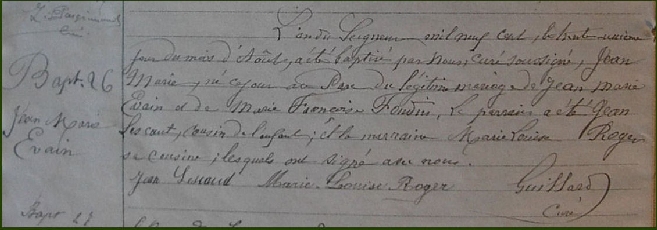 Bapt. 26
Jean Marie
Evain
L'an du Seigneur mil neuf cent, le trente unième
jour du mois d'Août, a été baptisé par nous, curé soussigné, Jean
Marie, né ce jour au du légitime mariage de Jean Marie
Evain et de Marie Françoise, le parrain a été Jean
Lescaut, cousin de l'enfant; et la marraine Marie Louise Roger
sa cousine; lesquels ont signé avec nous.
Jean Marie-Louise Roger Guillard
Curé
Bapt 27